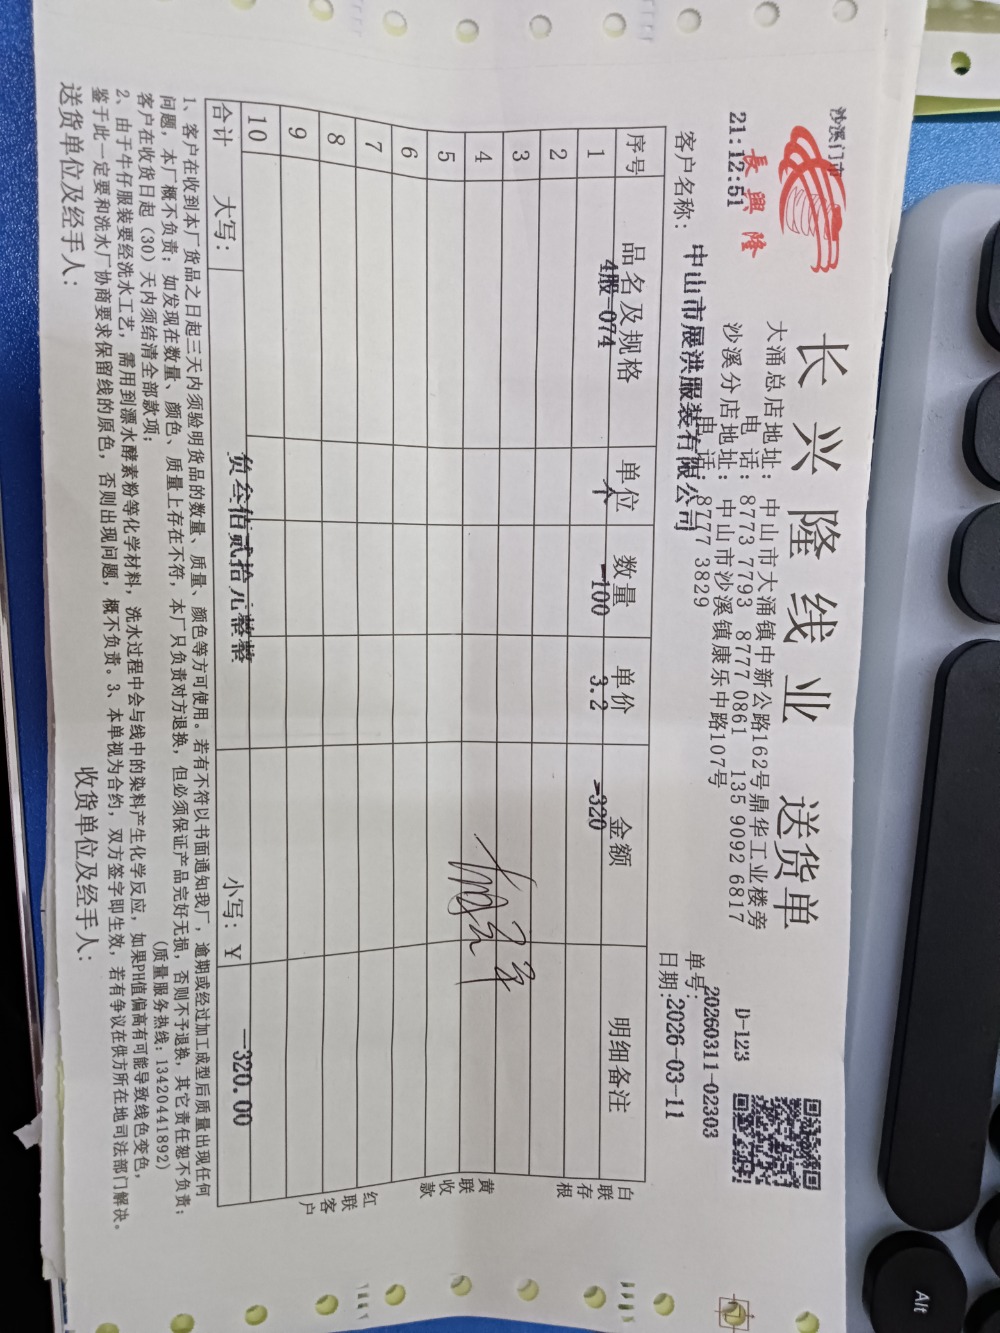 沙溪门市
長興隆
21:12:51
长兴隆线业 送货单
大涌总店地址：中山市大涌镇中新公路162号鼎华工业楼旁
电话：8773 7793 8777 0861 135 9092 6817
沙溪分店地址：中山市沙溪镇康乐中路107号
电话：8777 3829
D-123
单号：20260311-02303
日期：2026-03-11
客户名称：中山市展洪服装有限公司
序号 品名及规格 单位 数量 单价 金额 明细备注
1 4股-074 个 -100 3.2 -320
2
3
4
5
6
7
8
9
10
合计 大写： 负叁佰贰拾元整整 小写：￥ -320.00
白联存根
黄联收款
红联客户
1、客户在收到本厂货品之日起三天内须验明货品的数量、质量、颜色等方可使用。若有不符以书面通知我厂，逾期或经过加工成型后质量出现任何
问题，本厂概不负责；如发现在数量、颜色、质量上存在不符，本厂只负责对方退换，但必须保证产品完好无损，否则不予退换，其它责任恕不负责；
客户在收货日起（30）天内须结清全部款项；
（质量服务热线：13420441892）
2、由于牛仔服装要经洗水工艺，需用到漂水酵素粉等化学材料，洗水过程中会与线中的染料产生化学反应，如果PH值偏高有可能导致线色变色，
鉴于此一定要和洗水厂协商要求保留线的原色，否则出现问题，概不负责。3、本单视为合约，双方签字即生效，若有争议在供方所在地司法部门解决。
送货单位及经手人：
收货单位及经手人：
Alt